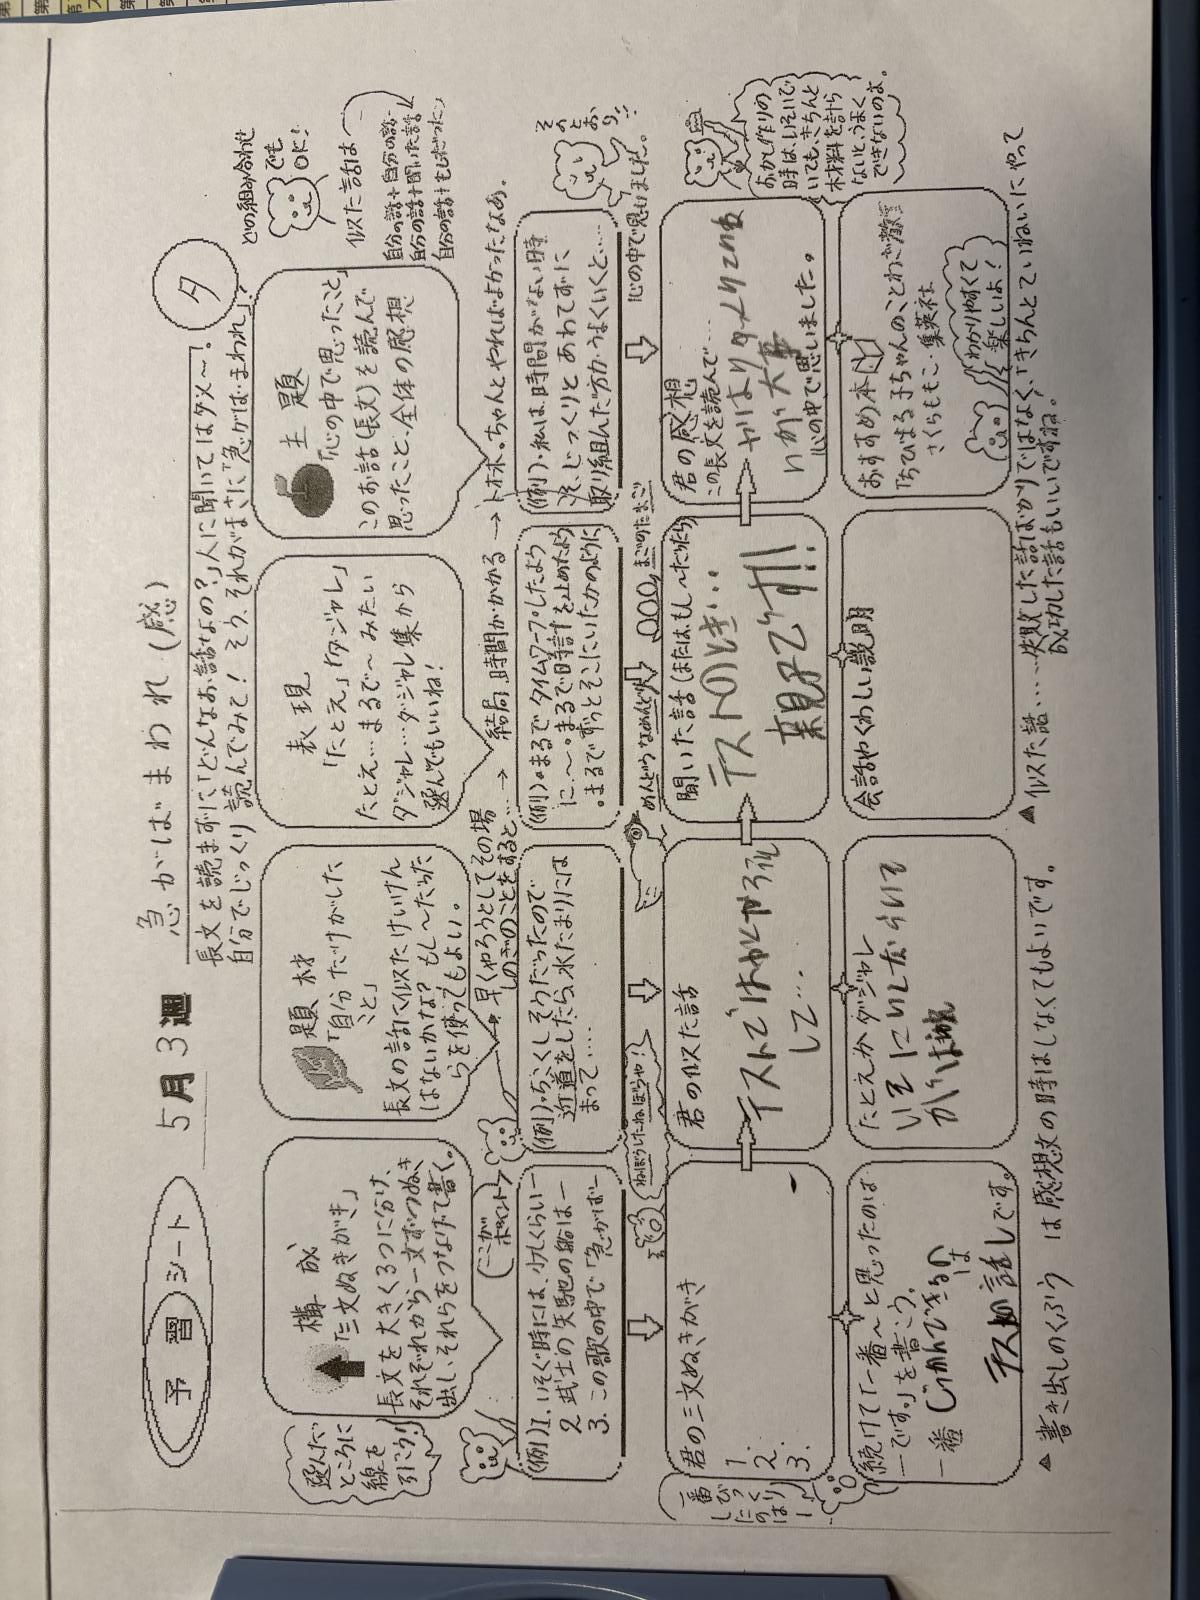 予習シート
5月3週
急がばまわれ(感)
夕
長文を読まずに「どんなお話なの?」人に聞いてはダメ〜!
自分でじっくり読んでみて!そう、それがまさに「急がばまわれ」!
選んだ
ところに
線を
引こう!
構成
「三文ぬきがき」
長文を大きく3つに分け、
それぞれから一文ずつぬき
出し、それらをつなげて書く。
題材
「自分だけがした
こと」
長文の話に似たけいけん
はないかな?もし〜だった
らを使ってもよい。
表現
「たとえ」「ダジャレ」
たとえ…まるで〜みたい
ダジャレ…ダジャレ集から
選んでもいいね!
主題
「心の中で思ったこと」
このお話(長文)を読んで
思ったこと、全体の感想
どの組み合わせ
でも
OK!
似た話は
自分の話+自分の話
自分の話+聞いた話
自分の話+もしだった
ここが
ポイント
早くやろうとしてその場
しのぎのことをすると…
結局、時間がかかる
ちゃんとやればよかったなあ。
(例)1. いそぐ時には、少しくらいー
2. 武士の矢馳の船はー
3. この歌の中で「急がばー
(例)・ちこくしそうだったので
近道をしたら、水たまりには
まって……
(例)・まるでタイムワープしたよう
に、〜。・まるで時計を止めたよう
・まるでずっとそこにいたかのように
(例)・私は、時間がない時
ほど、じっくりとあわてずに
取り組んだ方がうまくいくと……
そのとおり!!
ねぼうしたねぼうや!
めんどうなめんどり
まごのたまご
心の中で思いました。
一番
びっくり
したのは
ー!
君の三文ぬきがき
1.
2.
3.
君の似た話
テストではやくやろうと
して…
聞いた話(または、もし〜だったら)
テストのとき…
親子です!!
君の感想
この長文を読んで……
やはりゆっくりこつこつ
いが大事
心の中で思いました。
おかし作りの
時は、いそいで
いても、きちんと
材料を計ら
ないと、うまく
できないのよ。
続けて「一番〜と思ったのは
ーです。」を書こう。
一番じっかんできるのは
テストの話しです。
たとえかダジャレ
会話やくわしい説明
おすすめ本
「ちびまる子ちゃんのことわざ教室」
さくらももこ・集英社
わかりやすくて
楽しいよ!
▲書き出しのくふう は感想文の時はしなくてもよいです。
▲似た話……失敗した話ばかりではなく、「きちんとていねいにやって
成功した話もいいですね。